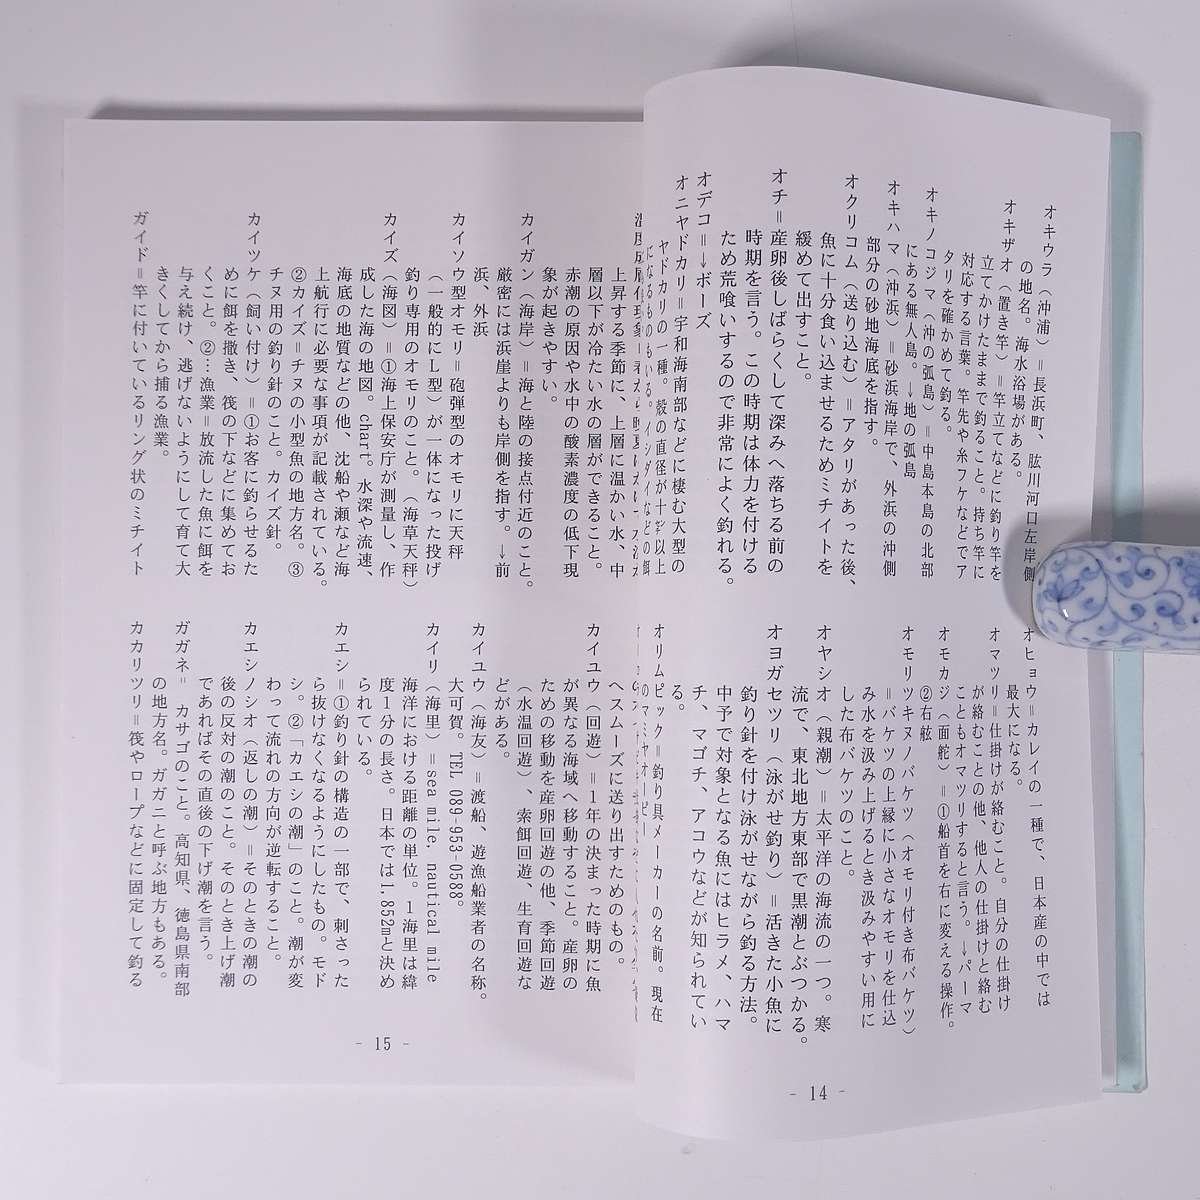 オキウラ（沖浦）＝長浜町、肱川河口左岸側
の地名。海水浴場がある。
オキザオ（置き竿）＝竿立てなどに釣り竿を
立てかけたままで釣ること。持ち竿に
対応する言葉。竿先や糸フケなどでア
タリを確かめて釣る。
オキノコジマ（沖の弧島）＝中島本島の北部
にある無人島。→地の弧島
オキハマ（沖浜）＝砂浜海岸で、外浜の沖側
部分の砂地海底を指す。
オクリコム（送り込む）＝アタリがあった後、
魚に十分食い込ませるためミチイトを
緩めて出すこと。
オチ＝産卵後しばらくして深みへ落ちる前の
時期を言う。この時期は体力を付ける
ため荒喰いするので非常によく釣れる。
オデコ＝→ボーズ
オニヤドカリ＝宇和海南部などに棲む大型の
ヤドカリの一種。殻の直径が十㌢以上
になるものもいる。イシダイなどの餌
オヒョウ＝カレイの一種で、日本産の中では
最大になる。
オマツリ＝仕掛けが絡むこと。自分の仕掛け
が絡むことの他、他人の仕掛けと絡む
こともオマツリすると言う。→パーマ
オモカジ（面舵）＝①船首を右に変える操作。
②右舷
オモリツキヌノバケツ（オモリ付き布バケツ）
＝バケツの上縁に小さなオモリを仕込
み水を汲み上げるとき汲みやすい用に
した布バケツのこと。
オヤシオ（親潮）＝太平洋の海流の一つ。寒
流で、東北地方東部で黒潮とぶつかる。
オヨガセツリ（泳がせ釣り）＝活きた小魚に
釣り針を付け泳がせながら釣る方法。
中予で対象となる魚にはヒラメ、ハマ
チ、マゴチ、アコウなどが知られてい
る。
オリムピック＝釣り具メーカーの名前。現在
のマミヤオーピー
- 14 -
上昇する季節に、上層に温かい水、中
層以下が冷たい水の層ができること。
赤潮の原因や水中の酸素濃度の低下現
象が起きやすい。
カイガン（海岸）＝海と陸の接点付近のこと。
厳密には浜崖よりも岸側を指す。→前
浜、外浜
カイソウ型オモリ＝砲弾型のオモリに天秤
（一般的にL型）が一体になった投げ
釣り専用のオモリのこと。（海草天秤）
カイズ（海図）＝①海上保安庁が測量し、作
成した海の地図。chart。水深や流速、
海底の地質などの他、沈船や瀬など海
上航行に必要な事項が記載されている。
②カイズ＝チヌの小型魚の地方名。③
チヌ用の釣り針のこと。カイズ針。
カイツケ（飼い付け）＝①お客に釣らせるた
めに餌を撒き、筏の下などに集めてお
くこと。②…漁業＝放流した魚に餌を
与え続け、逃げないようにして育て大
きくしてから捕る漁業。
ガイド＝竿に付いているリング状のミチイト
ヘスムーズに送り出すためのもの。
カイユウ（回遊）＝1年の決まった時期に魚
が異なる海域へ移動すること。産卵の
ための移動を産卵回遊の他、季節回遊
（水温回遊）、索餌回遊、生育回遊な
どがある。
カイユウ（海友）＝渡船、遊漁船業者の名称。
大可賀。TEL 089-953-0588。
カイリ（海里）＝sea mile, nautical mile
海洋における距離の単位。1海里は緯
度1分の長さ。日本では1.852mと決め
られている。
カエシ＝①釣り針の構造の一部で、刺さった
ら抜けなくなるようにしたもの。モド
シ。②「カエシの潮」のこと。潮が変
わって流れの方向が逆転すること。
カエシノシオ（返しの潮）＝そのときの潮の
後の反対の潮のこと。そのとき上げ潮
であればその直後の下げ潮を言う。
ガガネ＝ カサゴのこと。高知県、徳島県南部
の地方名。ガガニと呼ぶ地方もある。
カカリヅリ＝筏やロープなどに固定して釣る
- 15 -